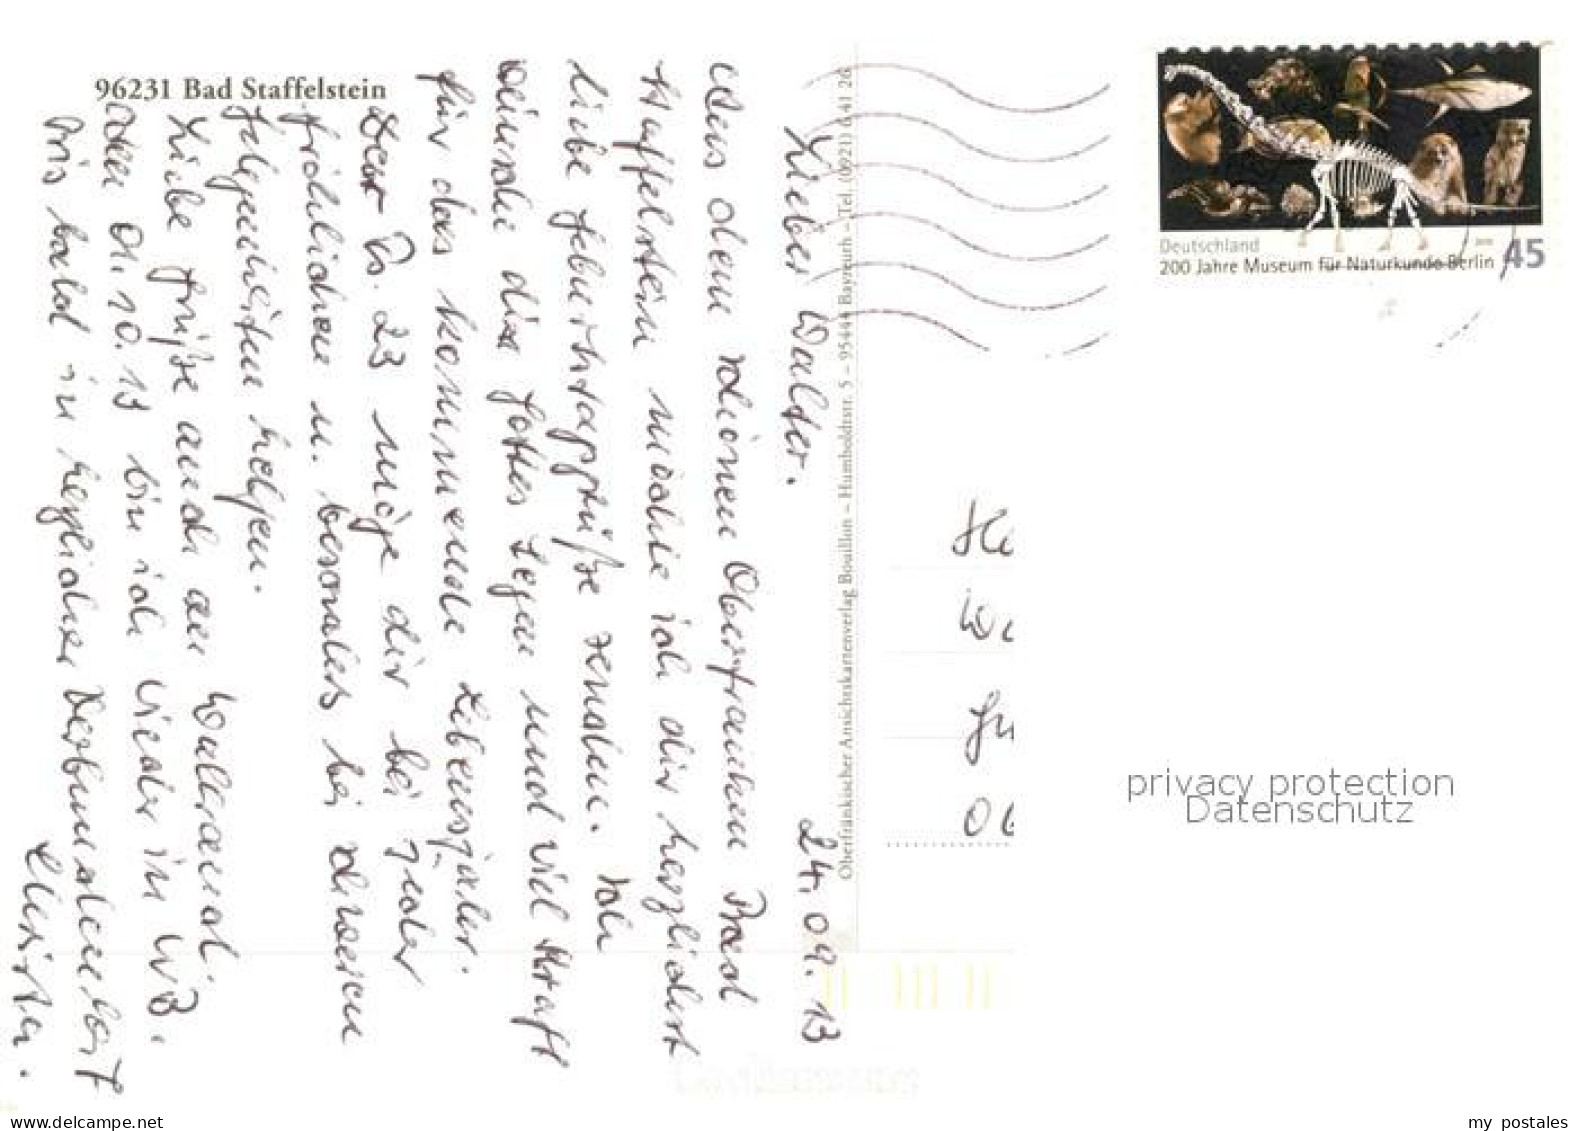 96231 Bad Staffelstein
24.09.13
Lieber Walter.
Aus dem schönen Oberfranken Bad
Staffelstein möchte ich dir herzlichst
liebe Geburtstagsgrüße senden. Ich
wünsche dir Gottes Segen und viel Kraft
für das kommende Lebensjahr.
Der Ps. 23 möge dir bei jeder
fröhlichen u. besonders bei schweren
Gelegenheiten helfen.
Liebe Grüße auch an Waltraud.
Am 01.10.13 bin ich wieder in WB.
Bis bald in herzlicher Verbundenheit
Christa.
Oberfränkischer Ansichtskartenverlag Bouillon – Humboldtstr. 5 – 95444 Bayreuth – Tel. (0921) 6 41 26
Deutschland
200 Jahre Museum für Naturkunde Berlin 45
privacy protection
Datenschutz
my postales